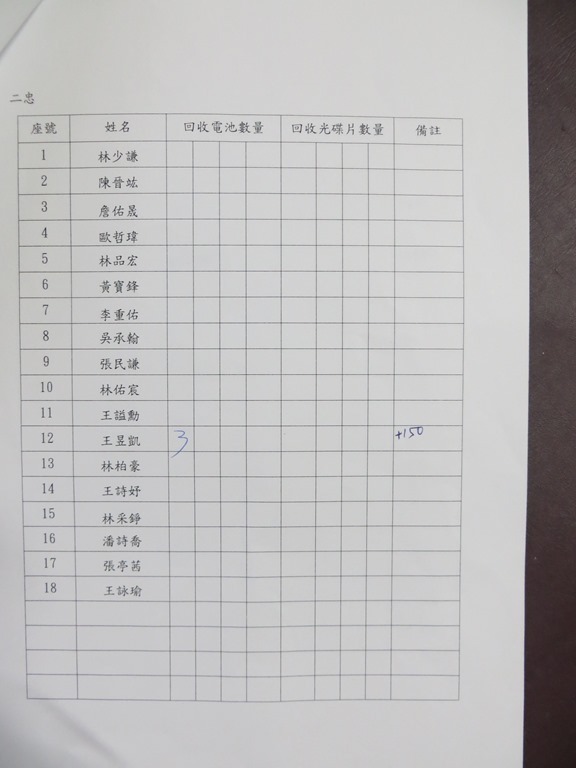 二忠
座號 姓名 回收電池數量 回收光碟片數量 備註
1 林少謙
2 陳晉竑
3 詹佑晟
4 歐哲瑋
5 林品宏
6 黃寶鋒
7 李重佑
8 吳承翰
9 張民謙
10 林佑宸
11 王謚勳
12 王昱凱 3 +150
13 林柏豪
14 王詩妤
15 林采錚
16 潘詩喬
17 張亭茜
18 王詠瑜